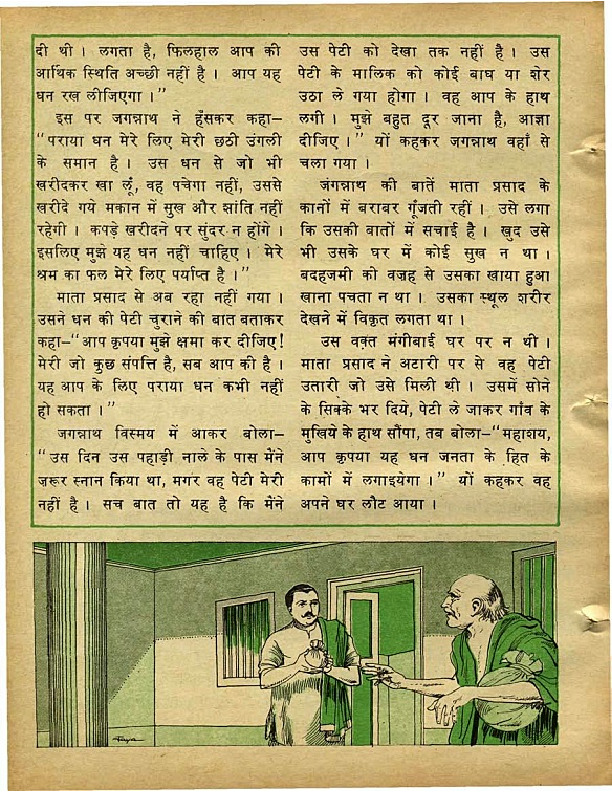 दी थी । लगता है, फिलहाल आप की
आर्थिक स्थिति अच्छी नहीं है । आप यह
धन रख लीजिएगा ।"
इस पर जगन्नाथ ने हँसकर कहा—
"पराया धन मेरे लिए मेरी छठी उंगली
के समान है । उस धन से जो भी
खरीदकर खा लूँ, वह पचेगा नहीं, उससे
खरीदे गये मकान में सुख और शांति नहीं
रहेगी । कपड़े खरीदने पर सुंदर न होंगे ।
इसलिए मुझे यह धन नहीं चाहिए । मेरे
श्रम का फल मेरे लिए पर्याप्त है ।"
माता प्रसाद से अब रहा नहीं गया ।
उसने धन की पेटी चुराने की बात बताकर
कहा—"आप कृपया मुझे क्षमा कर दीजिए!
मेरी जो कुछ संपत्ति है, सब आप की है ।
यह आप के लिए पराया धन कभी नहीं
हो सकता ।"
जगन्नाथ विस्मय में आकर बोला—
"उस दिन उस पहाड़ी नाले के पास मैंने
ज़रूर स्नान किया था, मगर वह पेटी मेरी
नहीं है । सच बात तो यह है कि मैंने
उस पेटी को देखा तक नहीं है । उस
पेटी के मालिक को कोई बाघ या शेर
उठा ले गया होगा । वह आप के हाथ
लगी । मुझे बहुत दूर जाना है, आज्ञा
दीजिए ।" यों कहकर जगन्नाथ वहाँ से
चला गया ।
जगन्नाथ की बातें माता प्रसाद के
कानों में बराबर गूँजती रहीं । उसे लगा
कि उसकी बातों में सचाई है । खुद उसे
भी उसके घर में कोई सुख न था ।
बदहजमी को वजह से उसका खाया हुआ
खाना पचता न था । उसका स्थूल शरीर
देखने में विकृत लगता था ।
उस वक़्त मंगीबाई घर पर न थी ।
माता प्रसाद ने अटारी पर से वह पेटी
उतारी जो उसे मिली थी । उसमें सोने
के सिक्के भर दिये, पेटी ले जाकर गाँव के
मुखिये के हाथ सौंपा, तब बोला—"महाशय,
आप कृपया यह धन जनता के हित के
कामों में लगाइयेगा ।" यों कहकर वह
अपने घर लौट आया ।